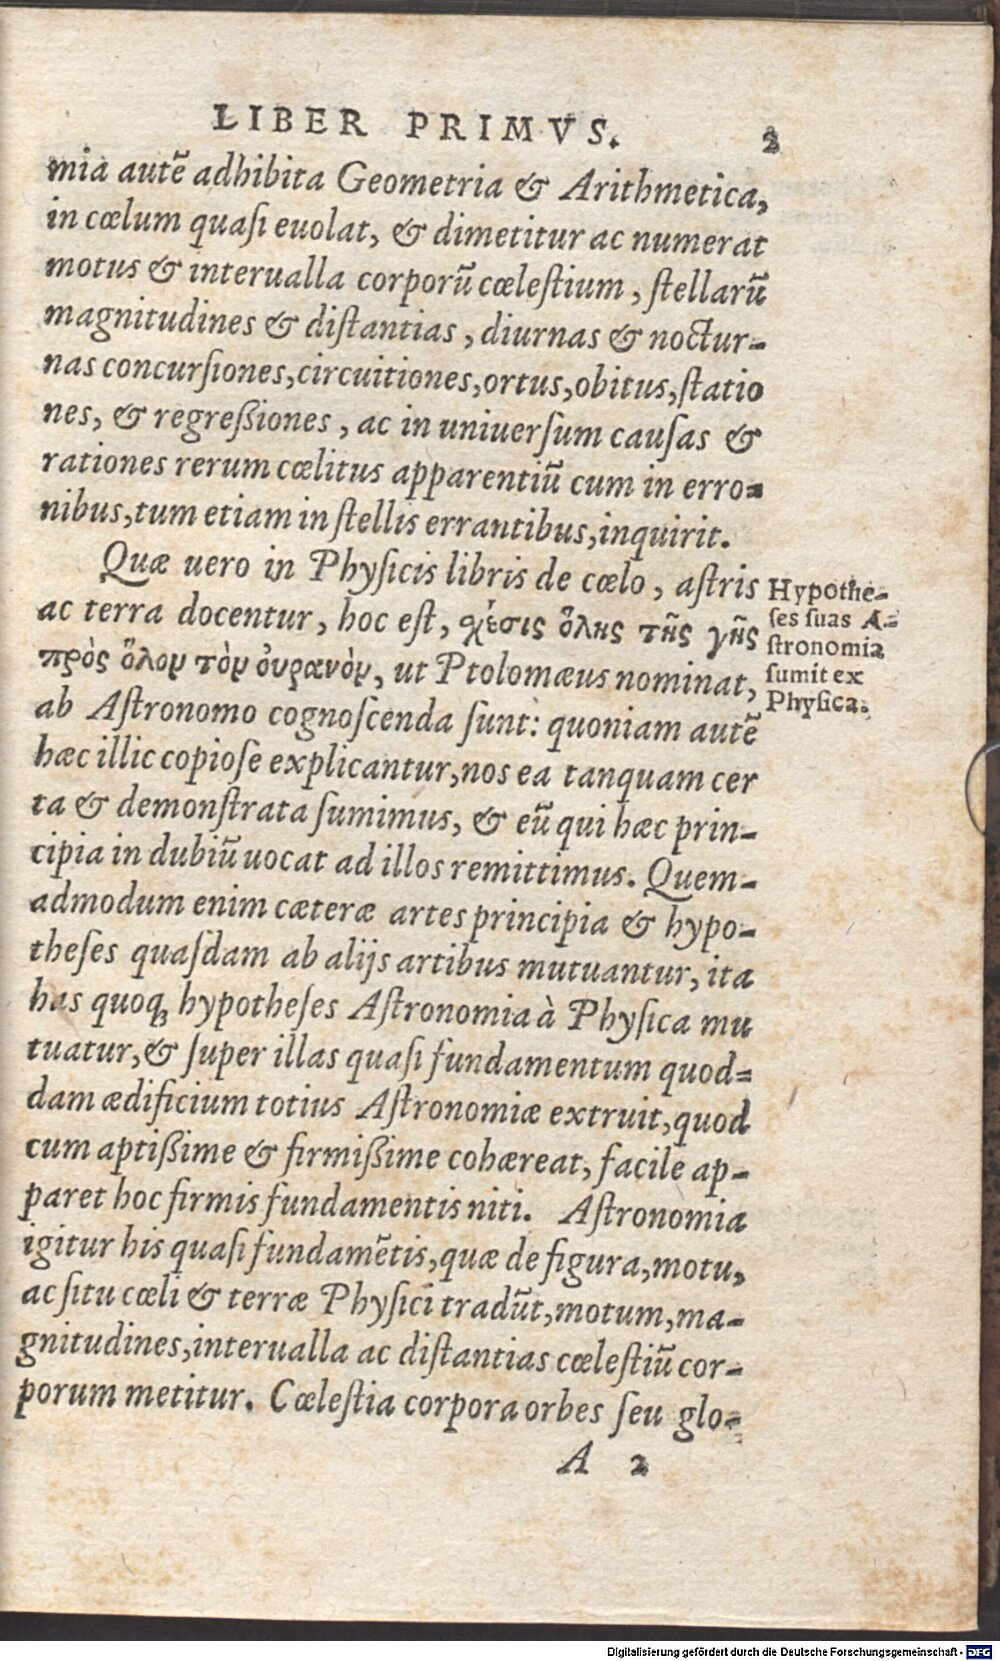 LIBER PRIMVS. 2
mia autẽ adhibita Geometria & Arithmetica,
in cœlum quaſi euolat, & dimetitur ac numerat
motus & interualla corporũ cœleſtium, ſtellarũ
magnitudines & diſtantias, diurnas & noctur-
nas concurſiones, circuitiones, ortus, obitus, ſtatio
nes, & regreßiones, ac in uniuerſum cauſas &
rationes rerum cœlitus apparentiũ cum in erro-
nibus, tum etiam in ſtellis errantibus, inquirit.
Quæ uero in Phyſicis libris de cœlo, aſtris
ac terra docentur, hoc eſt, χέσις ὅλης τῆς γῆς
πρὸς ὅλον τὸν ὀυρανὸν, ut Ptolomæus nominat,
ab Aſtronomo cognoſcenda ſunt: quoniam autẽ
hæc illic copioſe explicantur, nos ea tanquam cer
ta & demonſtrata ſumimus, & eũ qui hæc prin-
cipia in dubiũ uocat ad illos remittimus. Quem-
admodum enim cæteræ artes principia & hypo-
theſes quaſdam ab alijs artibus mutuantur, ita
has quoq; hypotheſes Aſtronomia à Phyſica mu
tuatur, & ſuper illas quaſi fundamentum quod-
dam ædificium totius Aſtronomiæ extruit, quod
cum aptißime & firmißime cohæreat, facile ap-
paret hoc firmis fundamentis niti. Aſtronomia
igitur his quaſi fundamẽtis, quæ de figura, motu,
ac ſitu cœli & terræ Phyſici tradũt, motum, ma-
gnitudines, interualla ac diſtantias cœleſtiũ cor-
porum metitur. Cœleſtia corpora orbes ſeu glo-
A 2
Hypothe-
ſes ſuas A-
ſtronomia
ſumit ex
Phyſica.
Digitalisierung gefördert durch die Deutsche Forschungsgemeinschaft - DFG